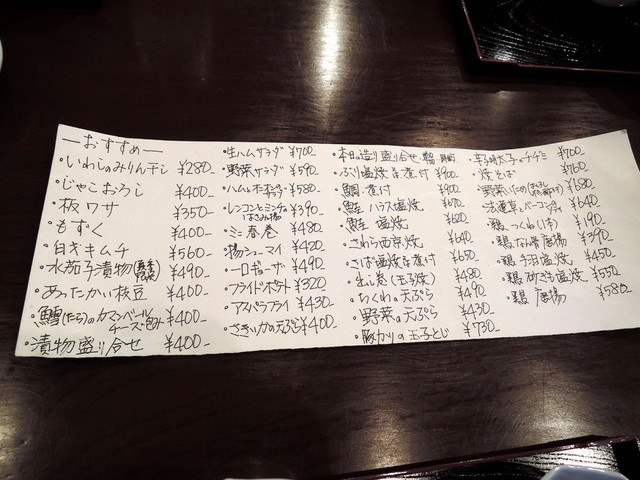 ―おすすめ―
・いわしのみりん干し ¥280-
・じゃこおろし ¥400-
・板ワサ ¥350-
・もずく ¥400-
・白才キムチ ¥560-
・水茄子漬物 ¥490-
・あったかい枝豆 ¥400-
・鱈(たら)のカマンベール
チーズ包み ¥400-
・漬物盛り合せ ¥400-
・生ハムサラダ ¥700-
・野菜サラダ ¥590-
・ハムと ¥580-
・レンコンとミンチの
はさみ揚 ¥390-
・ミニ春巻 ¥480
・揚シューマイ ¥420
・一口ギョーザ ¥490-
・フライドポテト ¥320
・アスパラフライ ¥430-
・さきいかの天ぷら ¥400-
・本日の造り盛り合せ
・ぶり塩焼 煮付 ¥900-
・鯛煮付 ¥900-
・鮭ハラス塩焼 ¥670-
・鮭塩焼 ¥620-
・さわら西京焼 ¥640
・さば塩焼 煮付 ¥650
・出し巻(玉子焼) ¥480
・ちくわの天ぷら ¥490
・野菜の天ぷら ¥430-
・豚かりの玉子とじ ¥730-
・辛子明太子のチヂミ ¥700-
・焼そば ¥760-
・野菜いため ¥680-
・法蓮草とベーコン ¥640
・鶏つくね(1本) ¥190
・鶏なんこつ唐揚 ¥390
・鶏手羽塩焼 ¥450
・鶏砂ずり塩焼 ¥550
・鶏唐揚 ¥580-